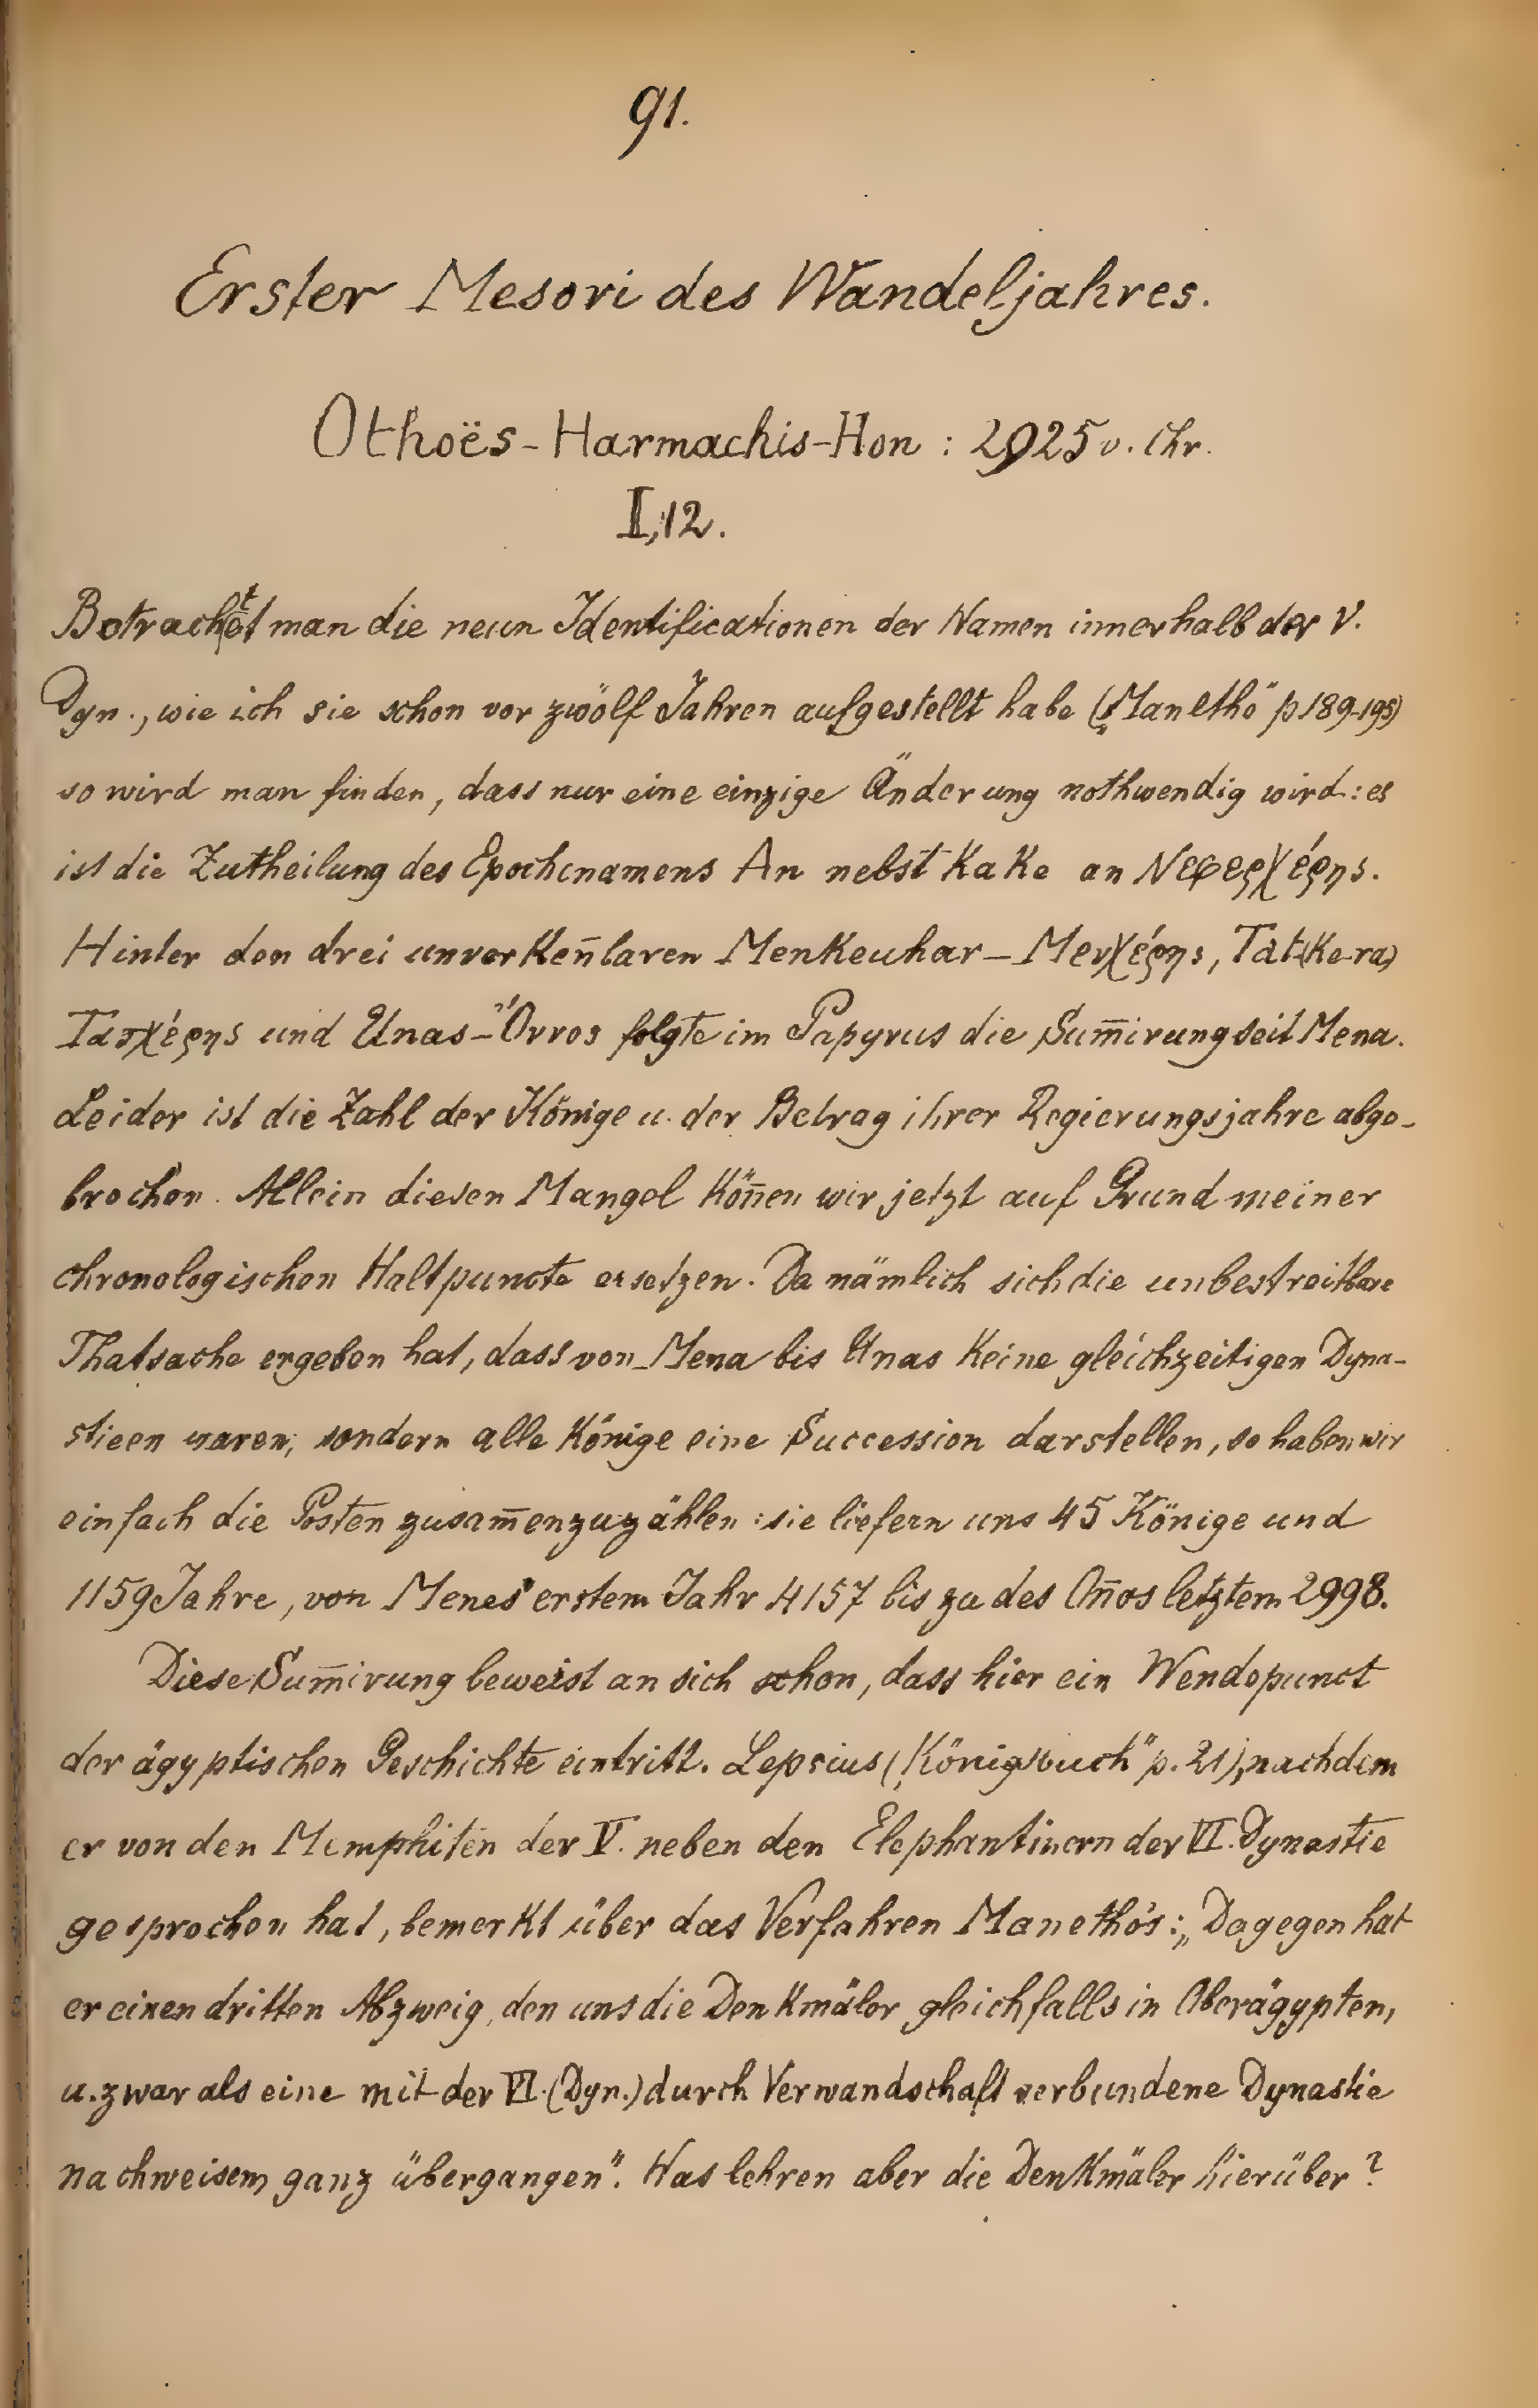 91.
Erster Mesori des Wandeljahres.
Othoës-Harmachis-Hon : 2925 v. Chr.
I,12.
Betrachtet man die neun Identificationen der Namen innerhalb der V.
Dyn., wie ich sie schon vor zwölf Jahren aufgestellt habe („Manethô" p 189-195)
so wird man finden, dass nur eine einzige Änderung nothwendig wird: es
ist die Zutheilung des Epochenamens An nebst KaKe an Νεφερχέρης.
Hinter den drei unverkeñbaren Menkeuhar – Μενχέρης, Tat(Ke-ra)
Τατχέρης und Unas – Ὄννος folgte im Papyrus die Sum̄irung seit Mena.
Leider ist die Zahl der Könige u. der Betrag ihrer Regierungsjahre abge-
brochen. Allein diesen Mangel köñen wir jetzt auf Grund meiner
chronologischen Haltpuncte ersetzen. Da nämlich sich die unbestreitbare
Thatsache ergeben hat, dass von Mena bis Unas keine gleichzeitigen Dyna-
stieen waren, sondern alle Könige eine Succession darstellen, so haben wir
einfach die Posten zusam̄enzuzählen : sie liefern uns 45 Könige und
1159 Jahre, von Menes' erstem Jahr 4157 bis zu des Oños letztem 2998.
Diese Sum̄irung beweist an sich schon, dass hier ein Wendepunct
der ägyptischen Geschichte eintritt. Lepsius („Königsbuch" p. 21), nachdem
er von den Memphiten der V. neben den Elephantinern der VI. Dynastie
gesprochen hat, bemerkt über das Verfahren Manethô's: „Dagegen hat
er einen dritten Abzweig, den uns die Denkmäler gleichfalls in Oberägypten,
u. zwar als eine mit der VI. (Dyn.) durch Verwandschaft verbundene Dynastie
nachweisen, ganz übergangen". Was lehren aber die Denkmäler hierüber?